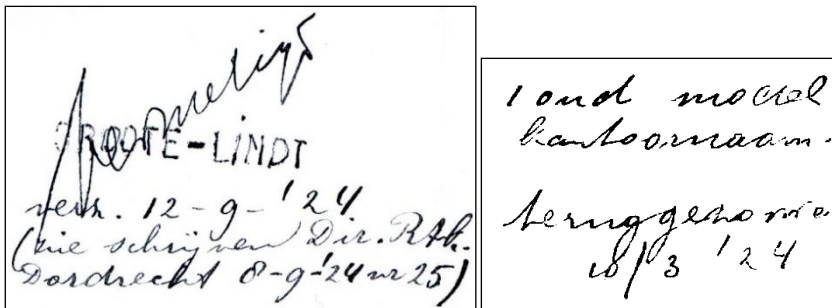 vernietigd
GROOTE-LINDT
verz. 12-9-'24
(zie schrijven Dir. Ptk.
Dordrecht 8-9-'24 nr 25)
1 oud model
kantoornaam.
teruggenome
10/3 '24